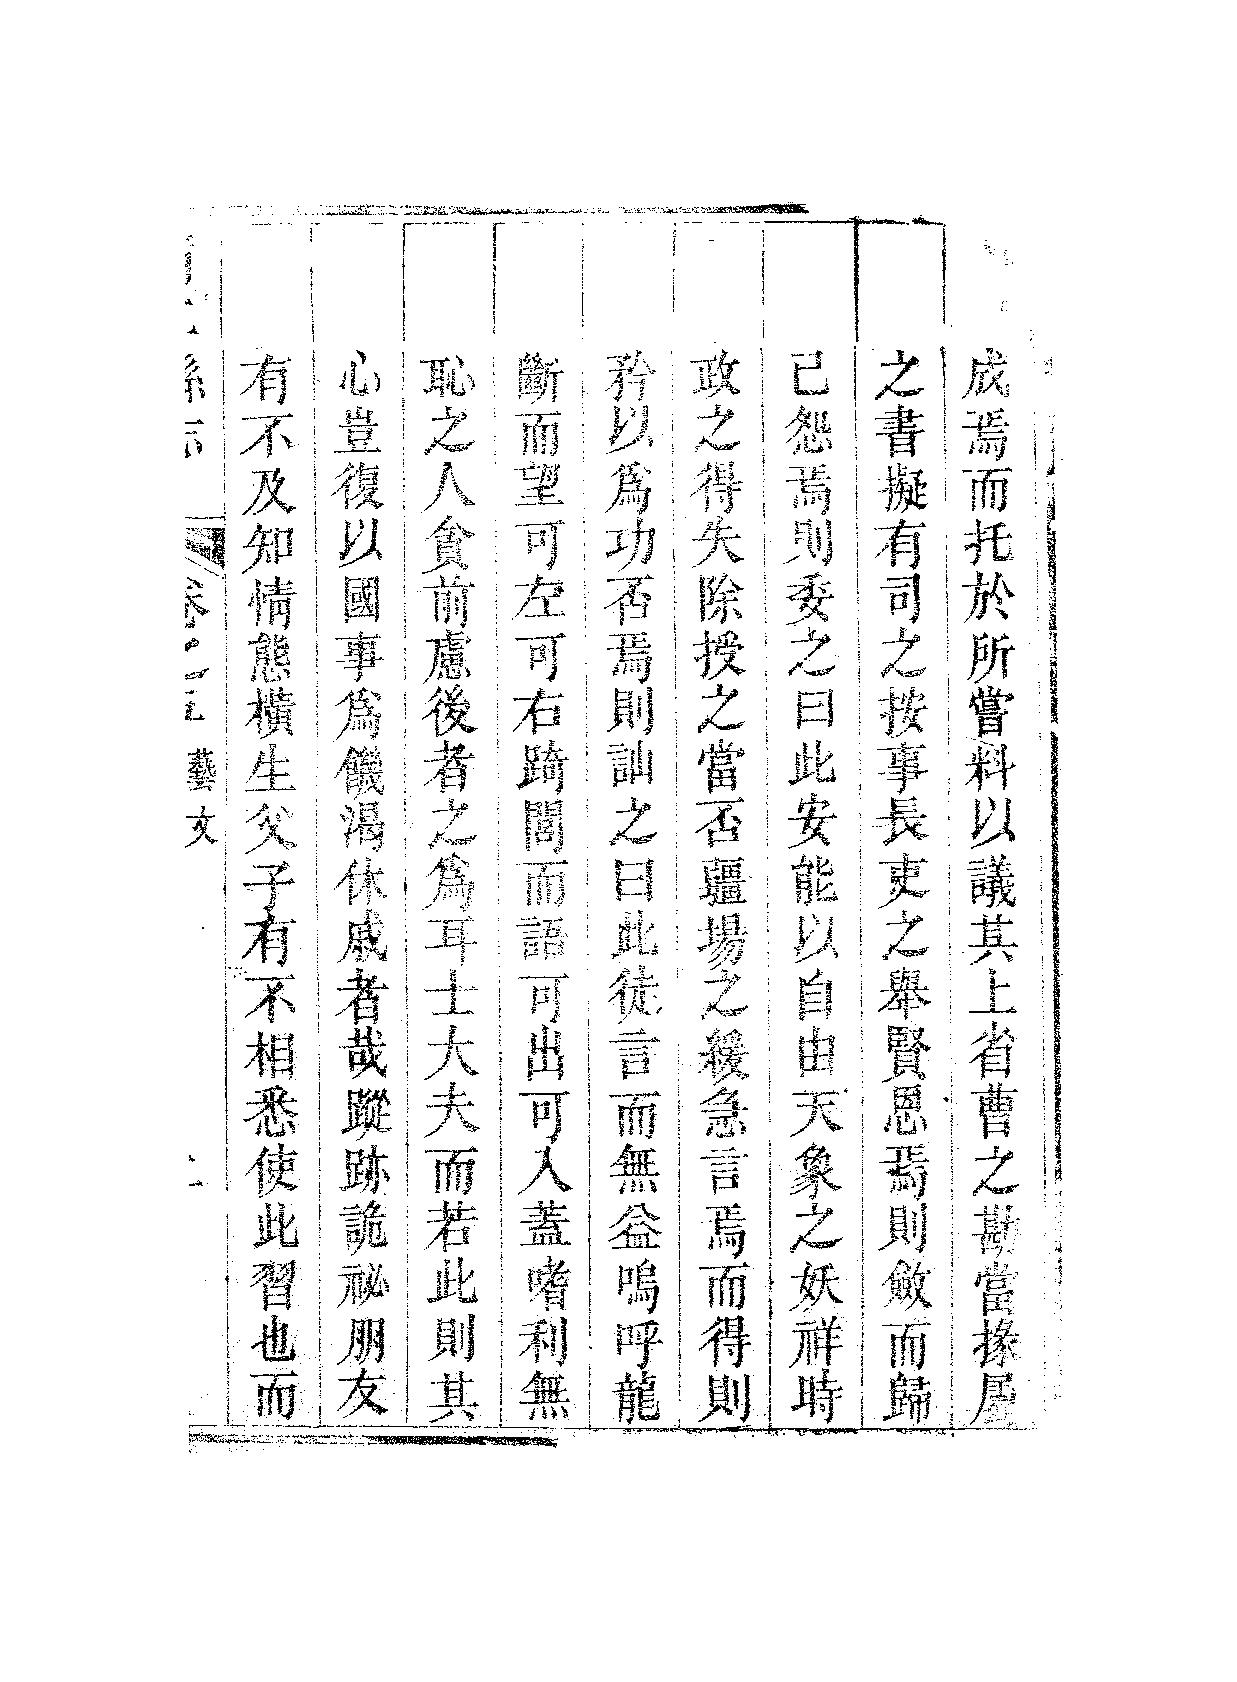 成焉而托於所嘗料以議其上省曹之勘當掾屬
之書擬有司之按事長吏之舉賢恩焉則斂而歸
已怨焉則委之曰此安能以自由天象之妖祥時
政之得失除授之當否疆場之緩急言焉而得則
矜以爲功否焉則訕之曰此徒言而無益嗚呼龍
斷而望可左可右踦閭而語可出可入蓋嗜利無
恥之人貪前慮後者之爲耳士大夫而若此則其
心豈復以國事爲饑渴休戚者哉蹤跡詭祕朋友
有不及知情態橫生父子有不相悉使此習也而
縣志 卷之 藝文